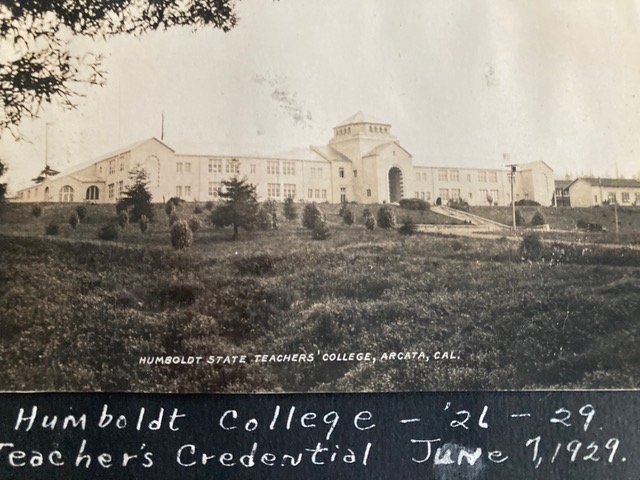 HUMBOLDT STATE TEACHERS' COLLEGE, ARCATA, CAL.
Humboldt College - '26 - 29.
Teacher's Credential June 7, 1929.